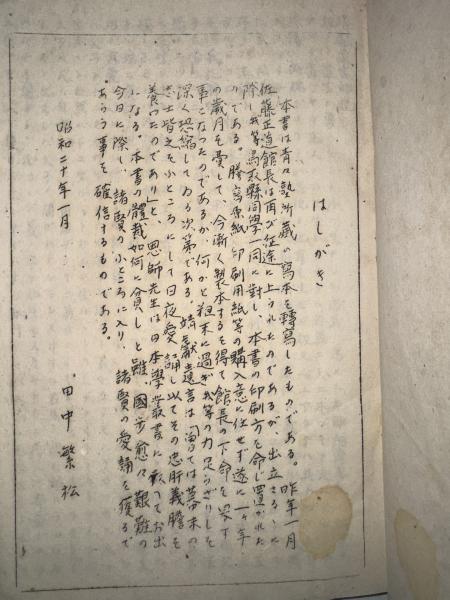 はしがき
本書は青々塾所蔵の寫本を轉寫したものである。昨年一月
佐藤正道館長は再び征途に上られたのであるが、出立さるゝに
際し我等鳥取縣同學一同に對し、本書の印刷方を命じ置かれた
のである。謄寫原紙印刷用紙等の購入意に任せず遂に一ヶ年
の歳月を費して、今漸く製本するを得て館長の下命を果す
事になつたのであるが、何かと粗末に過ぎ我等の力足らざりしを
深く恐縮してゐる次第である。靖獻遺言は幕末の
志士皆之をふところにして日夜愛誦し以てその忠肝義膽を
養つたのでありしと、恩師先生は日本學叢書に於てお出
になる。本書の體裁如何に貧しと雖、國步愈々艱難の
今日に際し、諸賢のふところに入り、諸賢の愛誦を獲るで
あらう事を確信するものである。
昭和二十年一月
田中繁松